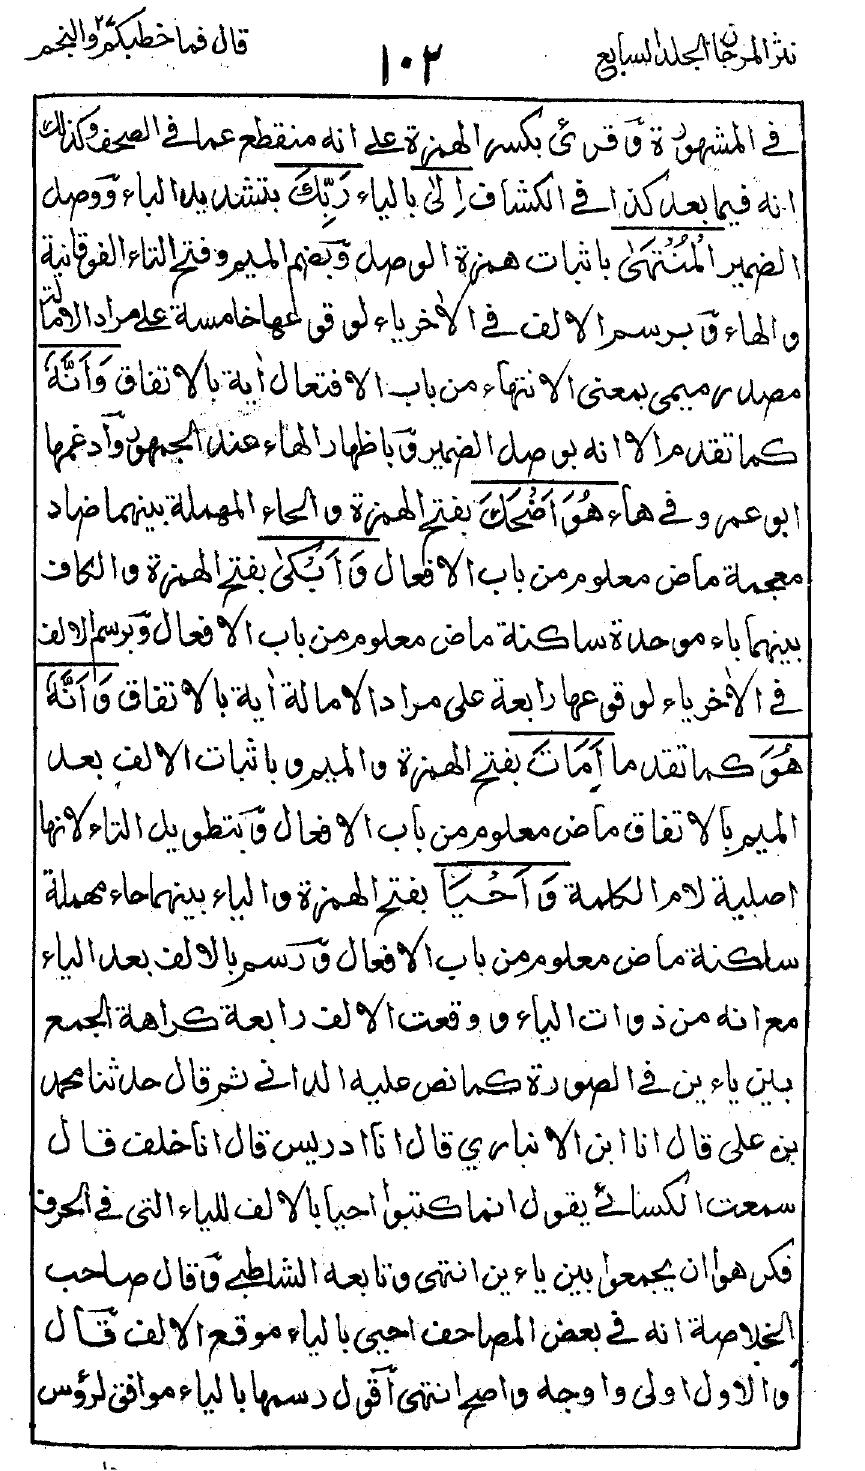 نثر المرجان الجلد السابع
١٠٢
قال فما خطبكم ٢٧ والنجم
في المشهورة وقرئ بكسر الهمزة على انه منقطع عما في الصحف وكذلك
انه فيما بعد كذا في الكشاف إِلىٰ بالياء رَبِّكَ بتشديد الباء ووصل
الضمير الْمُنْتَهىٰ باثبات همزة الوصل وبضم الميم وفتح التاء الفوقانية
والهاء وبرسم الالف في الاٰخر ياء لوقوعها خامسة على مراد الامالة
مصدر ميمي بمعنى الانتهاء من باب الافتعال اٰية بالاتفاق وَاَنَّهٗ
كما تقدم الا انه بوصل الضمير وباظهار الهاء عند الجمهور وادغمها
ابو عمرو في هاء هُوَ اَضْحَكَ بفتح الهمزة والحاء المهملة بينهما ضاد
معجمة ماض معلوم من باب الافعال وَاَبْكىٰ بفتح الهمزة والكاف
بينهما باء موحدة ساكنة ماض معلوم من باب الافعال وبرسم الالف
في الاٰخر ياء لوقوعها رابعة على مراد الامالة اٰية بالاتفاق وَاَنَّهٗ
هُوَ كما تقدما اَمَاتَ بفتح الهمزة والميم وباثبات الالف بعد
الميم بالاتفاق ماض معلوم من باب الافعال وبتطويل التاء لانها
اصلية لام الكلمة وَاَحْيَا بفتح الهمزة والياء بينهما حاء مهملة
ساكنة ماض معلوم من باب الافعال ورسم بالالف بعد الياء
مع انه من ذوات الياء ووقعت الالف رابعة كراهة الجمع
بين ياءين في الصورة كما نص عليه الداني ثم قال حدثنا محمد
بن على قال انا ابن الانباري قال انا ادريس قال انا خلف قال
سمعت الكسائي يقول انما كتبوا احيا بالالف للياء التي في الحرف
فكرهوا ان يجمعوا بين ياءين انتهى وتابعه الشاطبي وقال صاحب
الخلاصة انه في بعض المصاحف احيى بالياء موقع الالف قال
والاول اولى واوجه واصح انتهى اقول رسمها بالياء موافق لرؤس